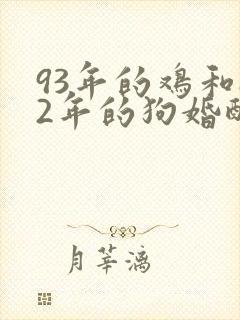 93年的鸡和
2年的狗婚
月華漓